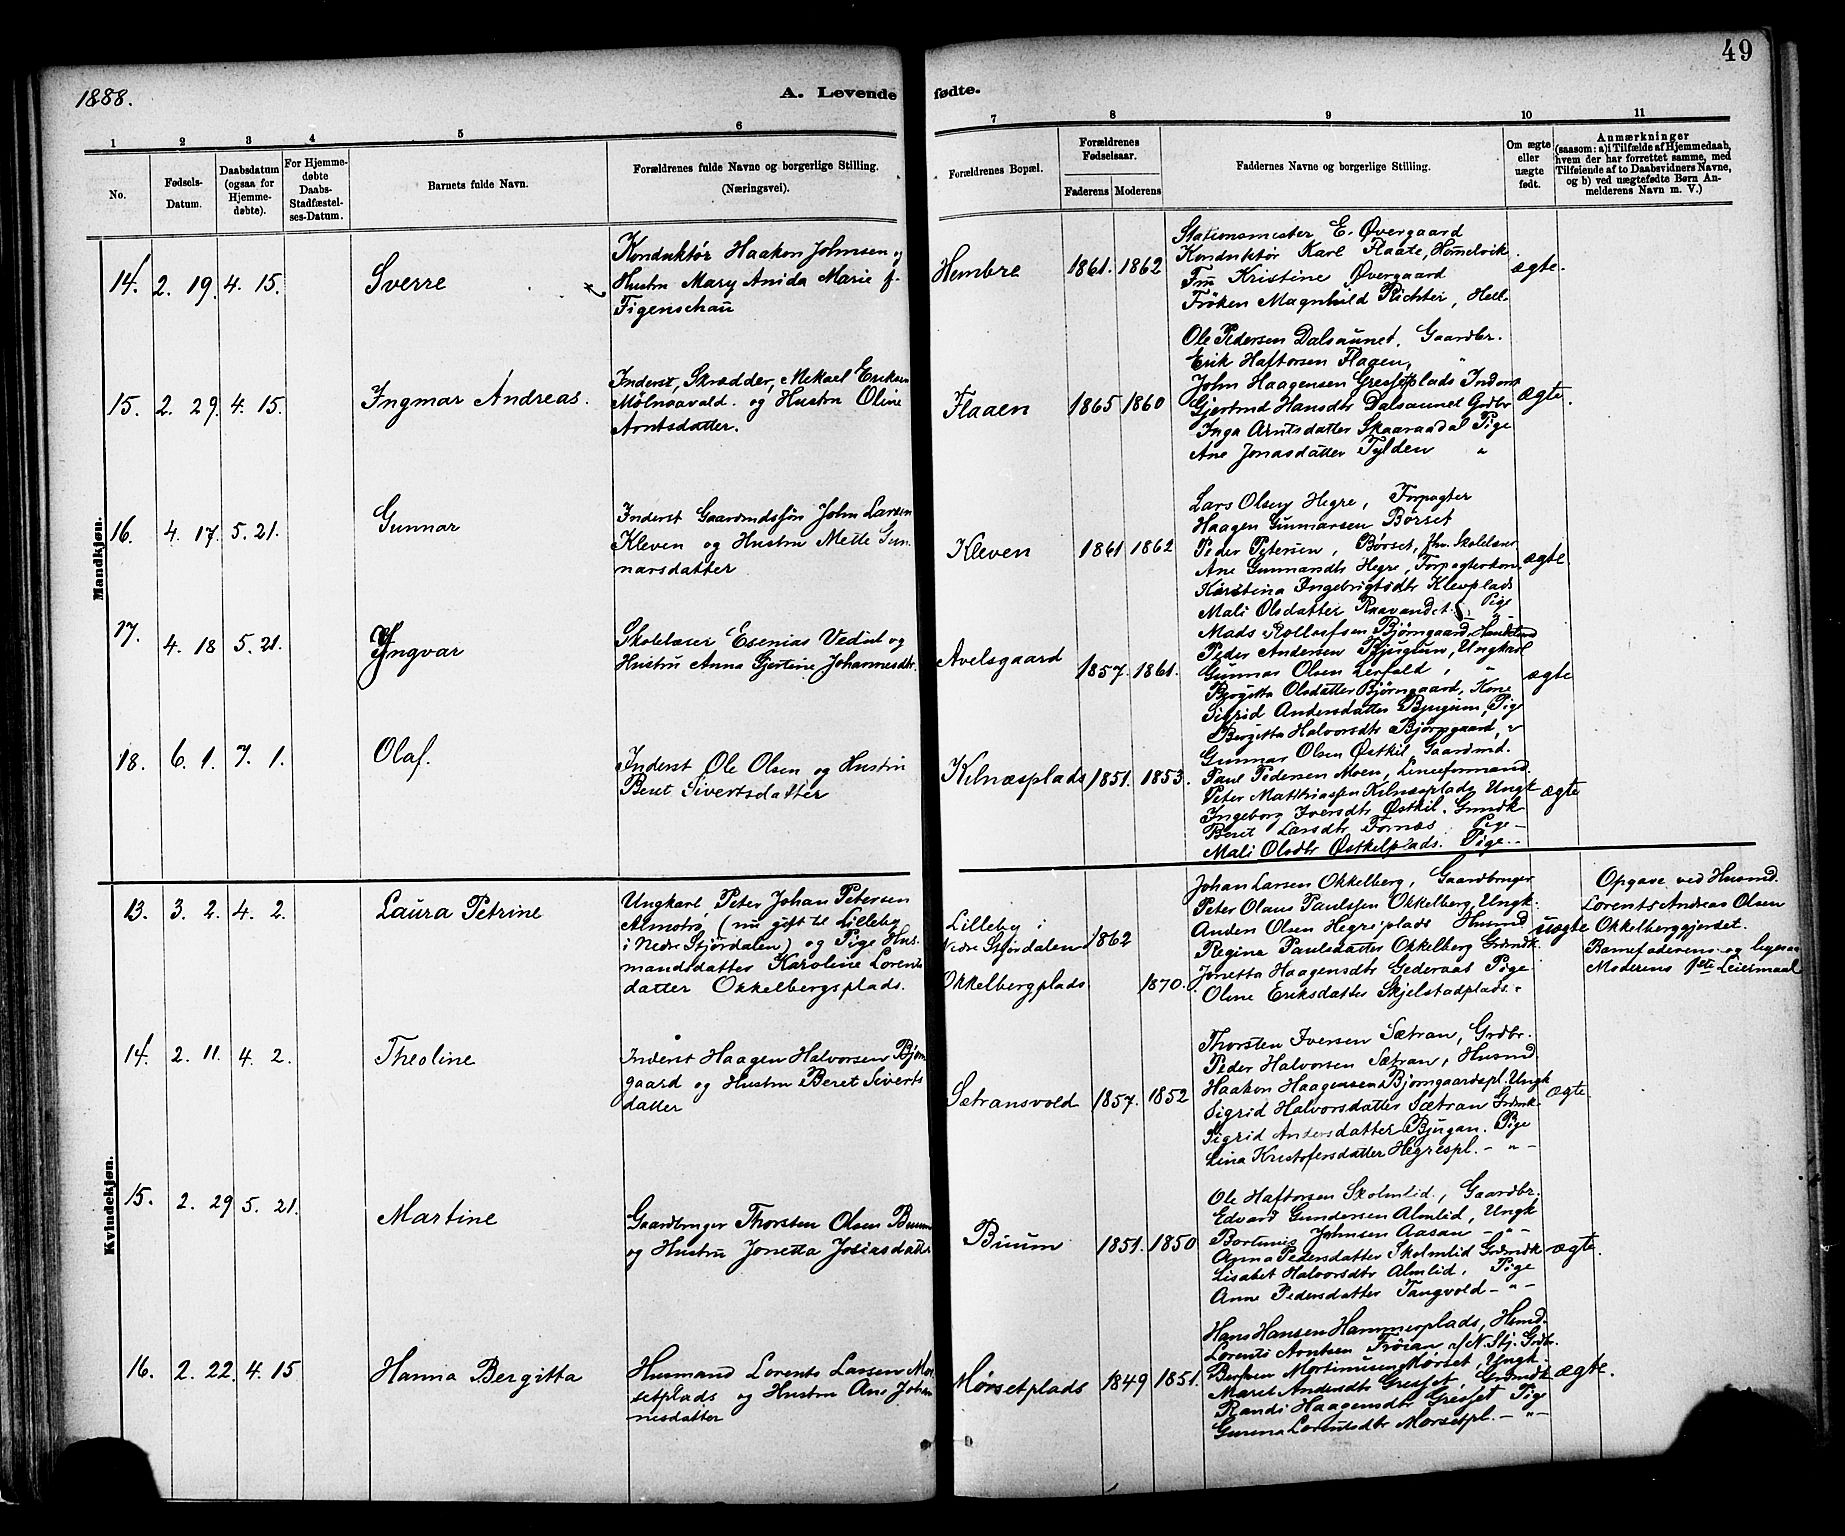 49
1888.
A. Levende fødte.
1 2 3 4 5 6 7 8 9 10 11
No.
Fødsels-
Datum.
Daabsdatum
(ogsaa for
Hjemme-
døbte).
For Hjemme-
døbte
Daabs-
Stadfæstel-
ses-Datum.
Barnets fulde Navn.
Forældrenes fulde Navne og borgerlige Stilling.
(Næringsvei).
Forældrenes Bopæl.
Forældrenes
Fødselsaar.
Faderens Moderens
Faddernes Navne og borgerlige Stilling.
Om ægte
eller
uægte
født.
Anmærkninger
(saasom: a) i Tilfælde af Hjemmedaab,
hvem der har forrettet samme, med
Tilføiende af to Daabsvidners Navne,
og b) ved uægtefødte Børn An-
melderens Navn m. V.)
Mandkjøn.
14. 2. 19. 4. 15. Sverre
Konduktør Haakon Johnsen og
Hustru Mary Anida Marie f.
Figenschau
Hembre 1861. 1862
Stationsmester E. Øvergaard
Konduktør Karl Flaate, Hommelvik.
Fru Kristine Øvergaard
Frøken Magnhild Richter, Hell
ægte.
15. 2. 29. 4. 15. Ingmar Andreas.
Inderst, Skrædder, Mikael Eriksen
Mølnaavald. og Hustru Oline
Arntsdatter.
Flaaen 1865 1860
Ole Pedersen Dalsaunet, Gaardbr.
Erik Haftorsen Flagen, "
John Haagensen Gressetplads Inders
Gjertrud Hansdtr Dalsaunet Grdbr
Inga Arntsdatter Skaaraadal Pige
Ane Jonasdatter Fylden "
ægte.
16. 4. 17. 5. 21. Gunnar
Inderst Gaardmdssøn John Larsen
Kleven og Hustru Mette Gun-
narsdatter
Kleven 1861 1862
Lars Olsen Hegre, Forpagter
Haagen Gunnarsen Børset
Peder Petersen, Børset, fhv. Skolelærer
Ane Gunnarsdtr Hegre, Forpagterkone
Kirstina Ingebrigtsdtr Klevplads
Mali Olsdatter Raavandet Pige
ægte.
17. 4. 18 5. 21. Yngvar
Skolelærer Esenias Vedul og
Hustru Anna Gjertine Johannesdtr.
Avelsgaard 1857. 1861.
Mads Rollaufsen Bjørngaard
Peder Andersen Bjugum, Ungkarl
Gunnar Olsen Lerfald, "
Bergitta Olsdatter Bjørngaard, Kone
Sigrid Andersdatter Bjugum, Pige
Bergitta Halvorsdtr Bjørngaard, "
ægte
18. 6. 1. 7. 1. Olaf.
Inderst Ole Olsen og Hustru
Beret Sivertsdatter
Kilnæsplads 1851. 1853.
Gunnar Olsen Østkil Gaardmd.
Paul Pedersen Moen, Lineeformand.
Peter Matthiassen Kilnæsplads Ungk
Ingeborg Iversdtr Østkil. Grmdk
Beret Larsdtr Fornæs. Pige –
Mali Olsdtr Østkilplads. Pige. -
ægte
Kvindekjøn.
13. 3. 2. 4. 2. Laura Petrine
Ungkarl, Peter Johan Petersen
Almotrø, (nu gift til Lilleby
i Nedre Stjørdalen) og Pige Hus-
mandsdatter Karoline Lorents
datter Okkelbergsplads.
Lilleby i
Nedre Stjørdalen 1862
Okkelbergplads 1870.
Johan Larsen Okkelberg, Gaardbruger
Peter Olaus Paulssen Okkelberg Ungk.
Anders Olsen Hegreplads Husmd
Regine Paulsdatter Okkelberg Grdmdk.
Jonetta Haagensdtr Gederaas Pige
Oline Eriksdatter Skjelstadplads. "
uægte
Opgave ved Husmd.
Lorents Andreas Olsen
Okkelberggjerdet.
Barnefaderens og ligesaa
Moderens 1ste Leiermaal
14. 2. 11. 4. 2. Theoline
Inderst Haagen Halvorsen Bjørn
gaard og Hustru Beret Siverts
datter
Sætransvold 1857. 1852
Thorsten Iversen Sætran, Grdbr.
Peder Halvorsen Sætran, Husmd
Haakon Haagensen Bjørngaardspl. Ungk
Sigrid Halvorsdatter Sætran Grdmk
Sigrid Andersdatter Bjugan. Pige
Lina Kristofersdatter Hegrespl. – " –
ægte.
15. 2. 29 5. 21. Martine
Gaardbruger Thorsten Olsen Buum
og Hustru Jonetta Josiasdatt.
Buum 1851. 1850
Ole Haftorsen Skolmlid, Gaardbr.
Edvard Gundersen Almlid, Ungk
Johnsen Aasan – " –
Anna Pedersdatter Skolmlid Grdmdk
Lisabet Halvorsdtr Almlid, Pige
Anne Pedersdatter Tangvold – " –
ægte.
16. 2. 22. 4. 15 Hanna Bergitta
Husmand Lorents Larsen Mør-
setplads og Hustru Ane Johan
nesdatter
Mørsetplads 1849 1851.
Hans Hansen Hammerplads, Hsmd.
Lorents Arntsen Trøian af N. Stj. Grdbr.
Bersven Mortinusen Mørset, Ungk.
Maret Andersdtr Gresset, Grdmdk
Randi Haagensdtr Gresset Pige
Gurina Lorentsdtr Mørsetpl. – " –
ægte.